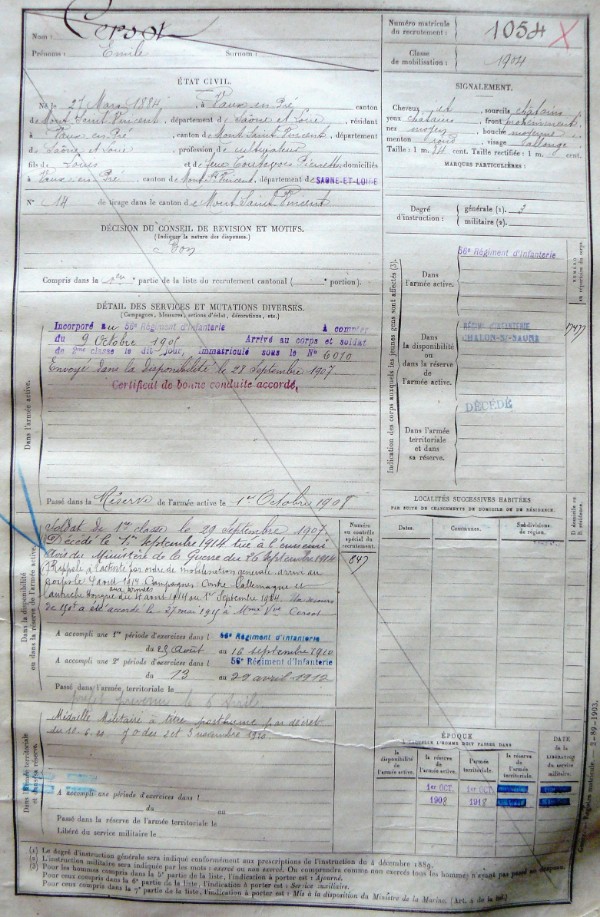 Nom : Cersot
Prénoms : Emile Surnom :
Numéro matricule du recrutement : 1054
Classe de mobilisation : 1904
ÉTAT CIVIL.
Né le 27 Mars 1884, à Vaux-en-Pré, canton
de Mont Saint Vincent, département de Saône et Loire, résident
à Vaux-en-Pré, canton de Mont Saint Vincent, département
de Saône et Loire, profession de cultivateur
fils de et de domiciliés
à Vaux-en-Pré, canton de Mont St Vincent, département de SAONE-ET-LOIRE
N° 14 de tirage dans le canton de Mont Saint Vincent
SIGNALEMENT.
Cheveux et sourcils châtains
yeux châtains, front
nez moyen, bouche moyenne
menton rond, visage
Taille : 1 m. cent. Taille rectifiée : 1 m. cent.
MARQUES PARTICULIÈRES :
Degré d'instruction : générale (1). 3
militaire (2).
DÉCISION DU CONSEIL DE REVISION ET MOTIFS.
(Indiquer la nature des dispenses.)
Bon
Compris dans la 1ère partie de la liste du recrutement cantonal ( portion).
DÉTAIL DES SERVICES ET MUTATIONS DIVERSES.
(Campagnes, blessures, actions d'éclat, décorations, etc.)
Dans l'armée active.
Incorporé au 56e Régiment d'Infanterie A compter
du 9 Octobre 1905 Arrivé au corps et soldat
de 2me classe le dit jour, immatriculé sous le N° 6070
Envoyé dans la Disponibilité le 28 Septembre 1907
Certificat de bonne conduite accordé,
Passé dans la Réserve de l'armée active le 1er Octobre 1908
Indication des corps auxquels les jeunes gens sont affectés (3).
Dans l'armée active.
56e Régiment d'Infanterie
Dans la disponibilité ou dans la réserve de l'armée active.
CHALON-S-SAONE
Dans l'armée territoriale et dans sa réserve.
DÉCÉDÉ
Dans la disponibilité ou dans la réserve de l'armée active.
Soldat de 1re classe le 20 Septembre 1907.
Décédé le 1er Septembre 1914 tué à l'ennemi
avis du Ministère de la Guerre du 26 Septembre 1914
Rappelé à l'activité par ordre de mobilisation générale arrivé au
corps le 4 août 1914 Campagnes Contre l'allemagne et
l'autriche Hongrie du 4 août 1914 au 1er Septembre 1914. Un secours
de 150f a été accordé le 27 mai 1915 à Mme Vve Cersot
Numéro au contrôle spécial du recrutement.
847
A accompli une 1re période d'exercices dans l 56e Régiment d'Infanterie
du 23 Août au 16 septembre 1910
A accompli une 2e période d'exercices dans l 56e Régiment d'Infanterie
du 13 au 29 avril 1912
Passé dans l'armée territoriale le
LOCALITÉS SUCCESSIVES HABITÉES
PAR SUITE DE CHANGEMENTS DE DOMICILE OU DE RÉSIDENCE.
Dates. Communes. Subdivisions de région. D domicile ou R résidence.
Dans l'armée territoriale et dans sa réserve.
Médaille Militaire à titre posthume par décret
du 10.6.20 J.O. des 2 et 3 novembre 1920.
A accompli une période d'exercices dans l
du au
Passé dans la réserve de l'armée territoriale le
Libéré du service militaire le
ÉPOQUE
À LAQUELLE L'HOMME DOIT PASSER DANS
la disponibilité de l'armée active. la réserve de l'armée active. l'armée territoriale. la réserve de l'armée territoriale.
DATE de la LIBÉRATION du service militaire.
1er OCT. 1er OCT.
1908 1918
(1) Le degré d'instruction générale sera indiqué conformément aux prescriptions de l'instruction du 4 décembre 1889.
(2) L'instruction militaire sera indiquée par les mots : exercé ou non exercé. On comprendra comme non exercés tous les hommes n'ayant pas passé sous les drapeaux.
(3) Pour les hommes compris dans la 5e partie de la liste, l'indication à porter est : Ajourné.
Pour ceux compris dans la 6e partie de la liste, l'indication à porter est : Service auxiliaire.
Pour ceux compris dans la 7e partie de la liste, l'indication à porter est : Mis à la disposition du Ministre de la Marine.